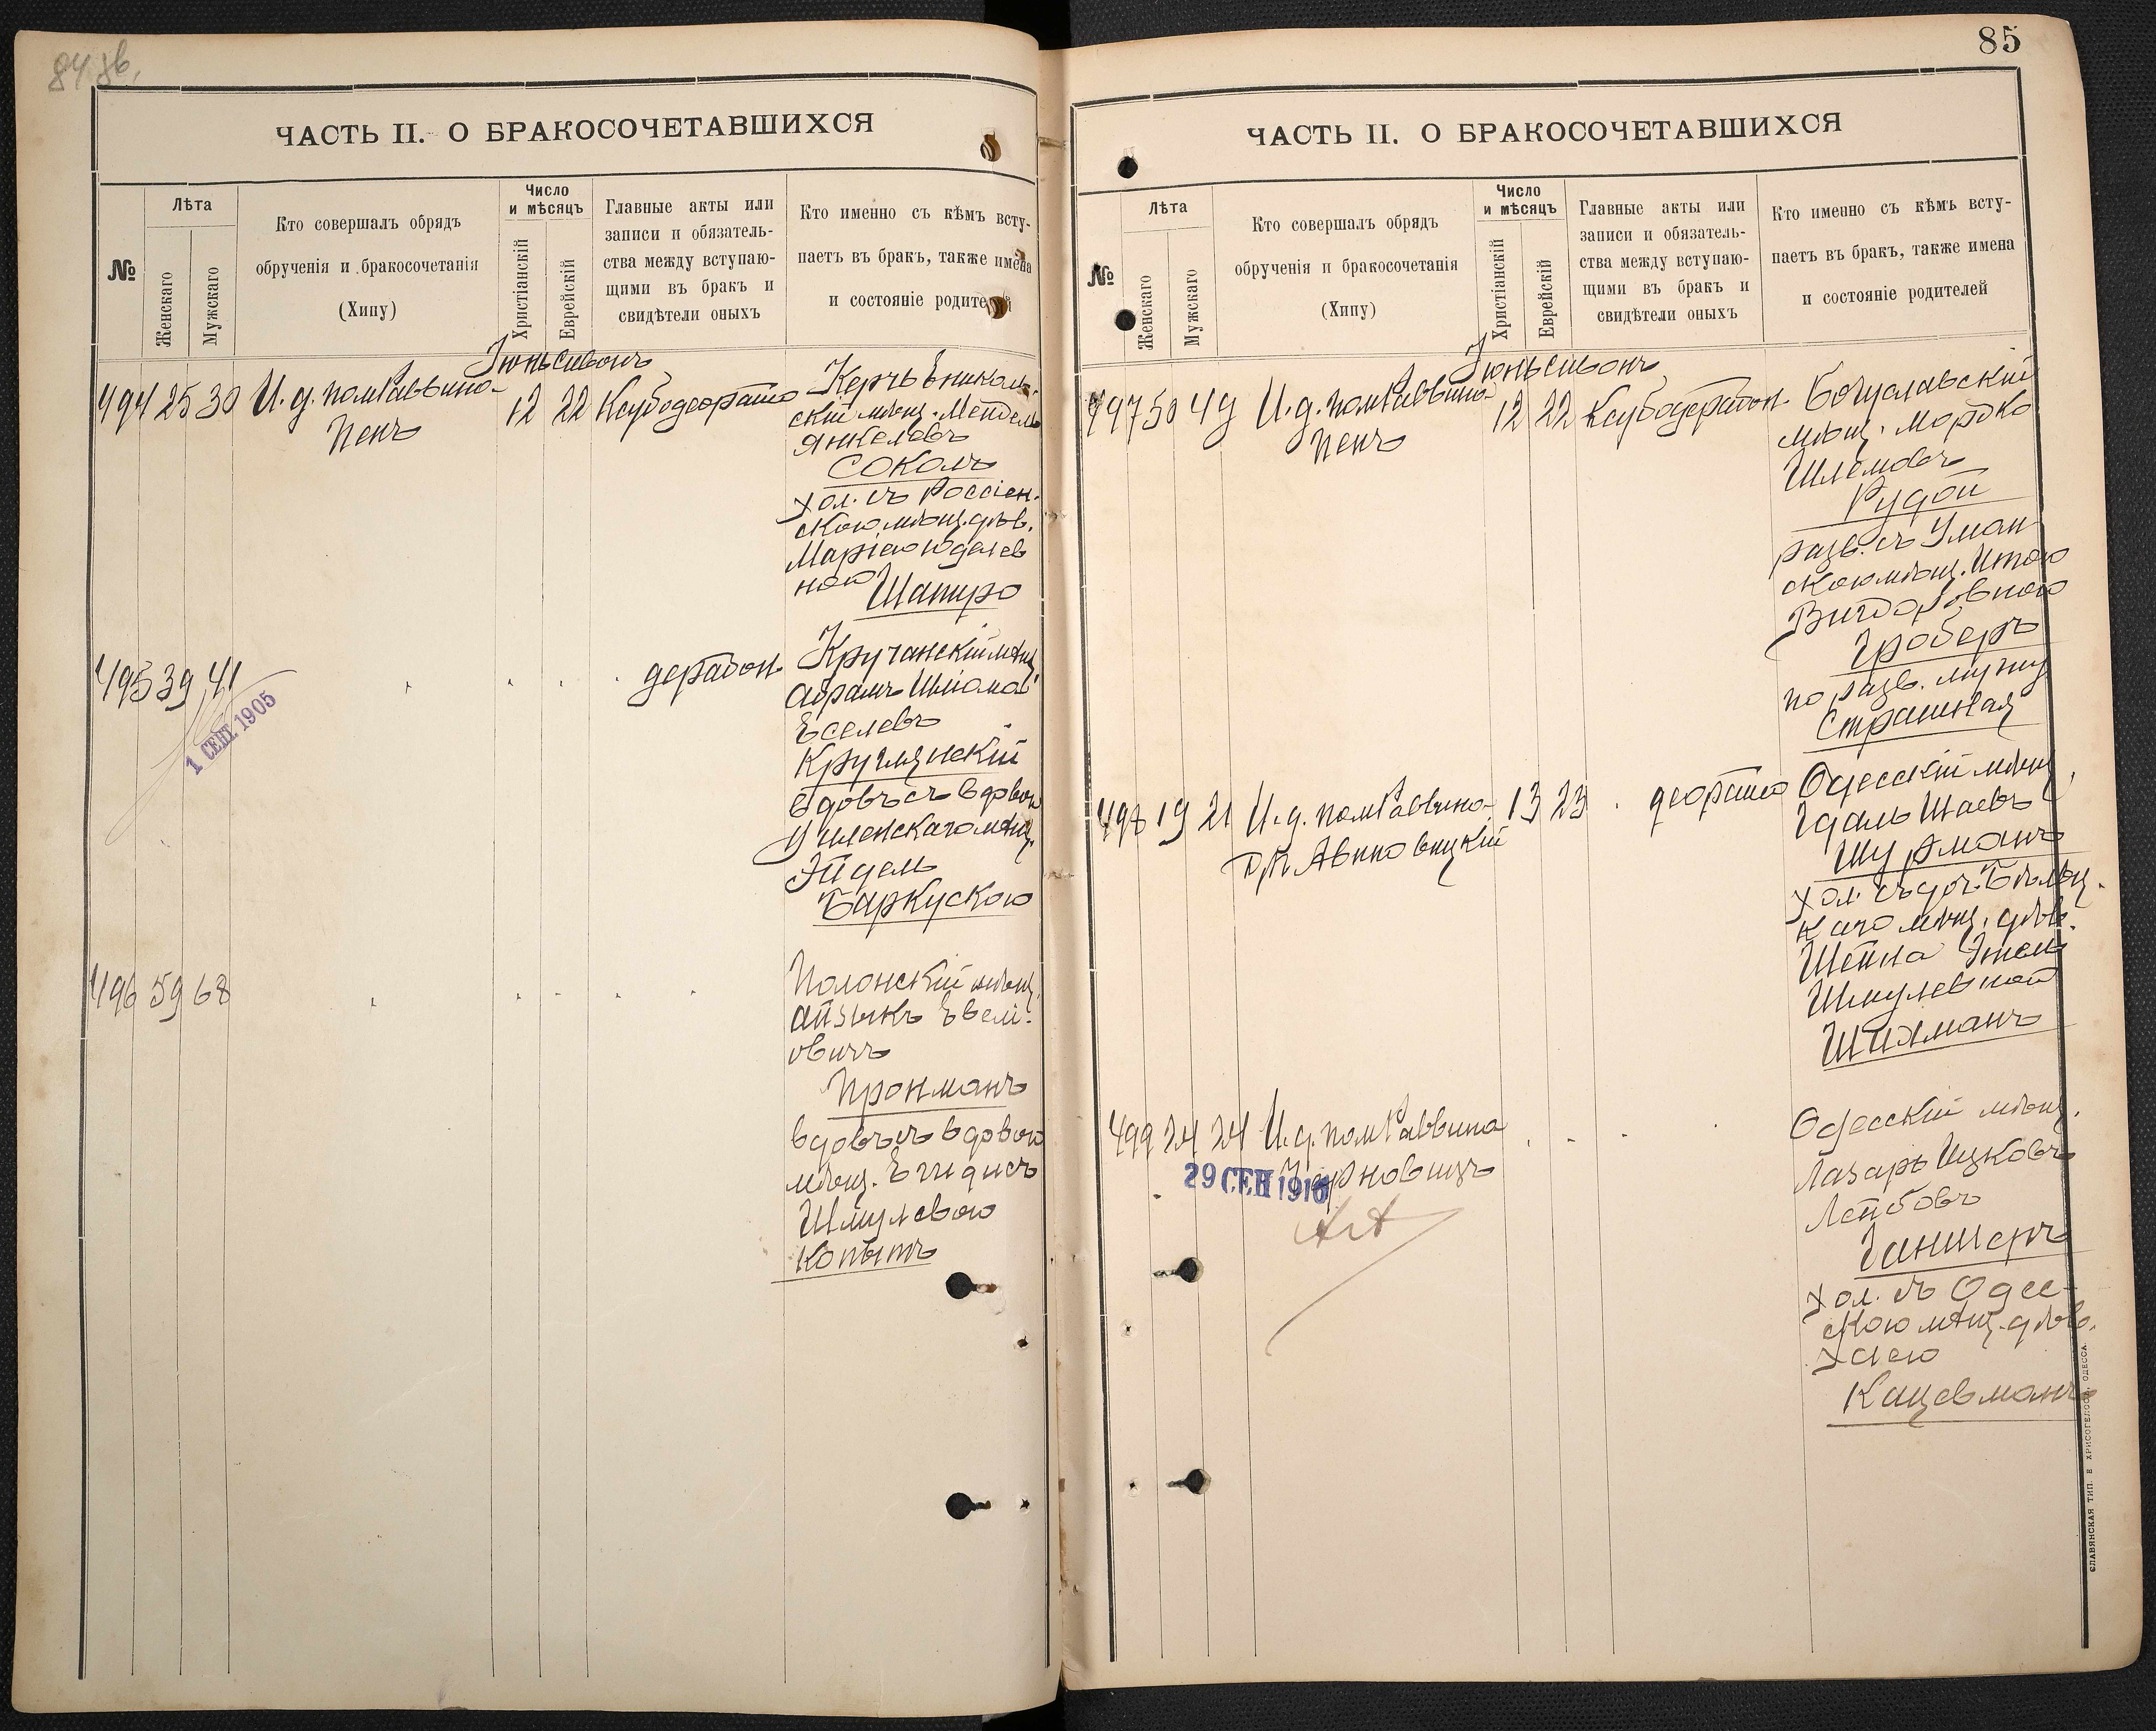 84 зв.
ЧАСТЬ II. О БРАКОСОЧЕТАВШИХСЯ
№
Лѣта
Женскаго
Мужскаго
Кто совершалъ обрядъ
обрученія и бракосочетанія
(Хипу)
Число
и мѣсяцъ
Христіанскій
Еврейскій
Главные акты или
записи и обязатель-
ства между вступаю-
щими въ бракъ и
свидѣтели оныхъ
Кто именно съ кѣмъ всту-
паетъ въ бракъ, также имена
и состояніе родителей
Іюнь Сивонъ
494 25 30 И. д. пом Раввина
Пенъ
12 22 Ксубодеорайто
Керчь Ениколь-
скій мѣщ. Мендель
Янкелевъ
Соколъ
хол. съ Россіен-
скою мѣщ. дѣв.
Маріею Юделев
ною Шапиро
495 39 41
дерабон.
1 СЕН. 1905
Кручанскій мѣщ
Абрамъ Шліома
Еселевъ
Круглянскій
вдовъ съ вдовою
мѣщ.
Эйдель
Баркускою
496 59 68
Полонскій мѣщ.
Айзыкъ Евелі-
овичъ
Пронманъ
вдовъ съ вдовою
мѣщ. Енидисъ
Шмулевою
Копытъ
85
ЧАСТЬ II. О БРАКОСОЧЕТАВШИХСЯ
№
Лѣта
Женскаго
Мужскаго
Кто совершалъ обрядъ
обрученія и бракосочетанія
(Хипу)
Число
и мѣсяцъ
Христіанскій
Еврейскій
Главные акты или
записи и обязатель-
ства между вступаю-
щими въ бракъ и
свидѣтели оныхъ
Кто именно съ кѣмъ всту-
паетъ въ бракъ, также имена
и состояніе родителей
Іюнь Сивонъ
497 50 49 И. д. пом Раввина
Пенъ
12 22 Ксубодерабон.
Богуславскій
мѣщ. Мордко
Шлемовъ
Рудой
разв. съ Уман
скою мѣщ. Итою
Вигдоровною
Гроберъ
по разв. мужу
Страшная
498 19 21 И. д. пом Раввина
Др. Авиновицкій
13 23 деорайто
Одесскій мѣщ.
Гдаль Шаевъ
Шурманъ
хол. съ доч. Бѣльц-
каго мѣщ. дѣв.
Шейна Этель
Шмулевной
Шихманъ
499 24 24 И. д. пом Раввина
29 СЕН 1916
Одесскій мѣщ.
Лазарь Ицковъ
Лейбовъ
Ганшеръ
хол. съ Одес-
скою мѣщ. дѣв.
Хаею
Кацевманъ
СЛАВЯНСКАЯ ТИП. Е ХРИСОГЕЛОСЪ, ОДЕССА.